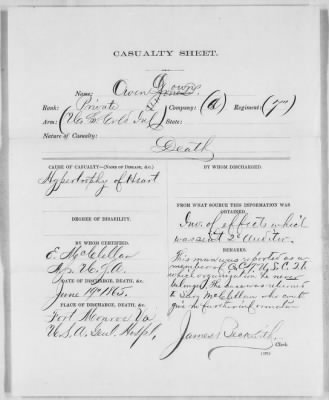 CASUALTY SHEET.
Name: Owen Jones
Rank: Private Company: (A) Regiment: (7")
Arm: (U.S. Col'd Inf) State:
Nature of Casualty:
Death
CAUSE OF CASUALTY—(NAME OF DISEASE, &c.)
Hypertrophy of Heart
DEGREE OF DISABILITY.
BY WHOM CERTIFIED.
E. McClellan
U.S.A.
DATE OF DISCHARGE, DEATH, &c.
June 19" 1865.
PLACE OF DISCHARGE, DEATH, &c.
Fort Monroe Va
U.S.A. Genl Hospl,
BY WHOM DISCHARGED.
FROM WHAT SOURCE THIS INFORMATION WAS
OBTAINED.
Inv. of effects which
was sent 2" Auditor.
REMARKS.
This man was reported as a
member of Co. C 7" U.S.C.
which organization he never
belonged. The case was returned
to Surg McClellan who could
give no further information
James Beckwith,
Clerk.